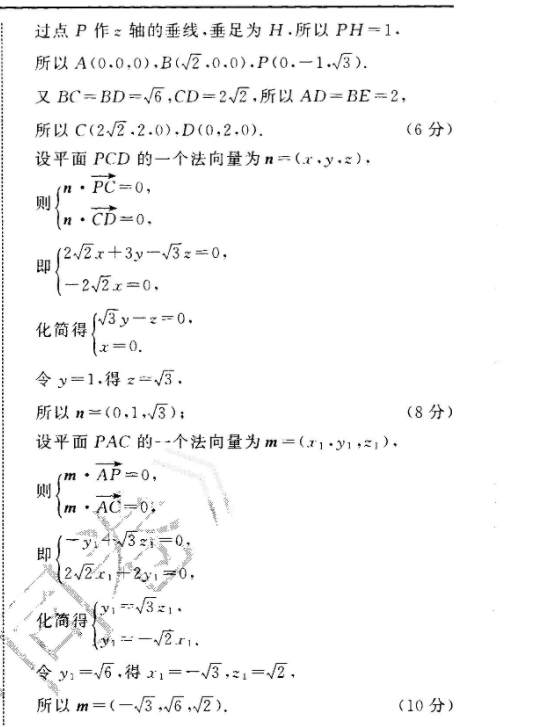 过点 P 作 z 轴的垂线,垂足为 H,所以 PH=1,
所以 A(0,0,0),B(√2,0,0),P(0,-1,√3).
又 BC=BD=√6,CD=2√2,所以 AD=BE=2,
所以 C(2√2,2,0),D(0,2,0). (6 分)
设平面 PCD 的一个法向量为 n=(x,y,z),
则 { n·PC→=0,
n·CD→=0,
即 { 2√2x+3y-√3z=0,
-2√2x=0,
化简得 { √3y-z=0,
x=0.
令 y=1,得 z=√3,
所以 n=(0,1,√3); (8 分)
设平面 PAC 的一个法向量为 m=(x₁,y₁,z₁),
则 { m·AP→=0,
m·AC→=0,
即 { -y₁+√3z₁=0,
2√2x₁+2y₁=0,
化简得 { y₁=√3z₁,
y₁=-√2x₁,
令 y₁=√6,得 x₁=-√3,z₁=√2,
所以 m=(-√3,√6,√2). (10 分)